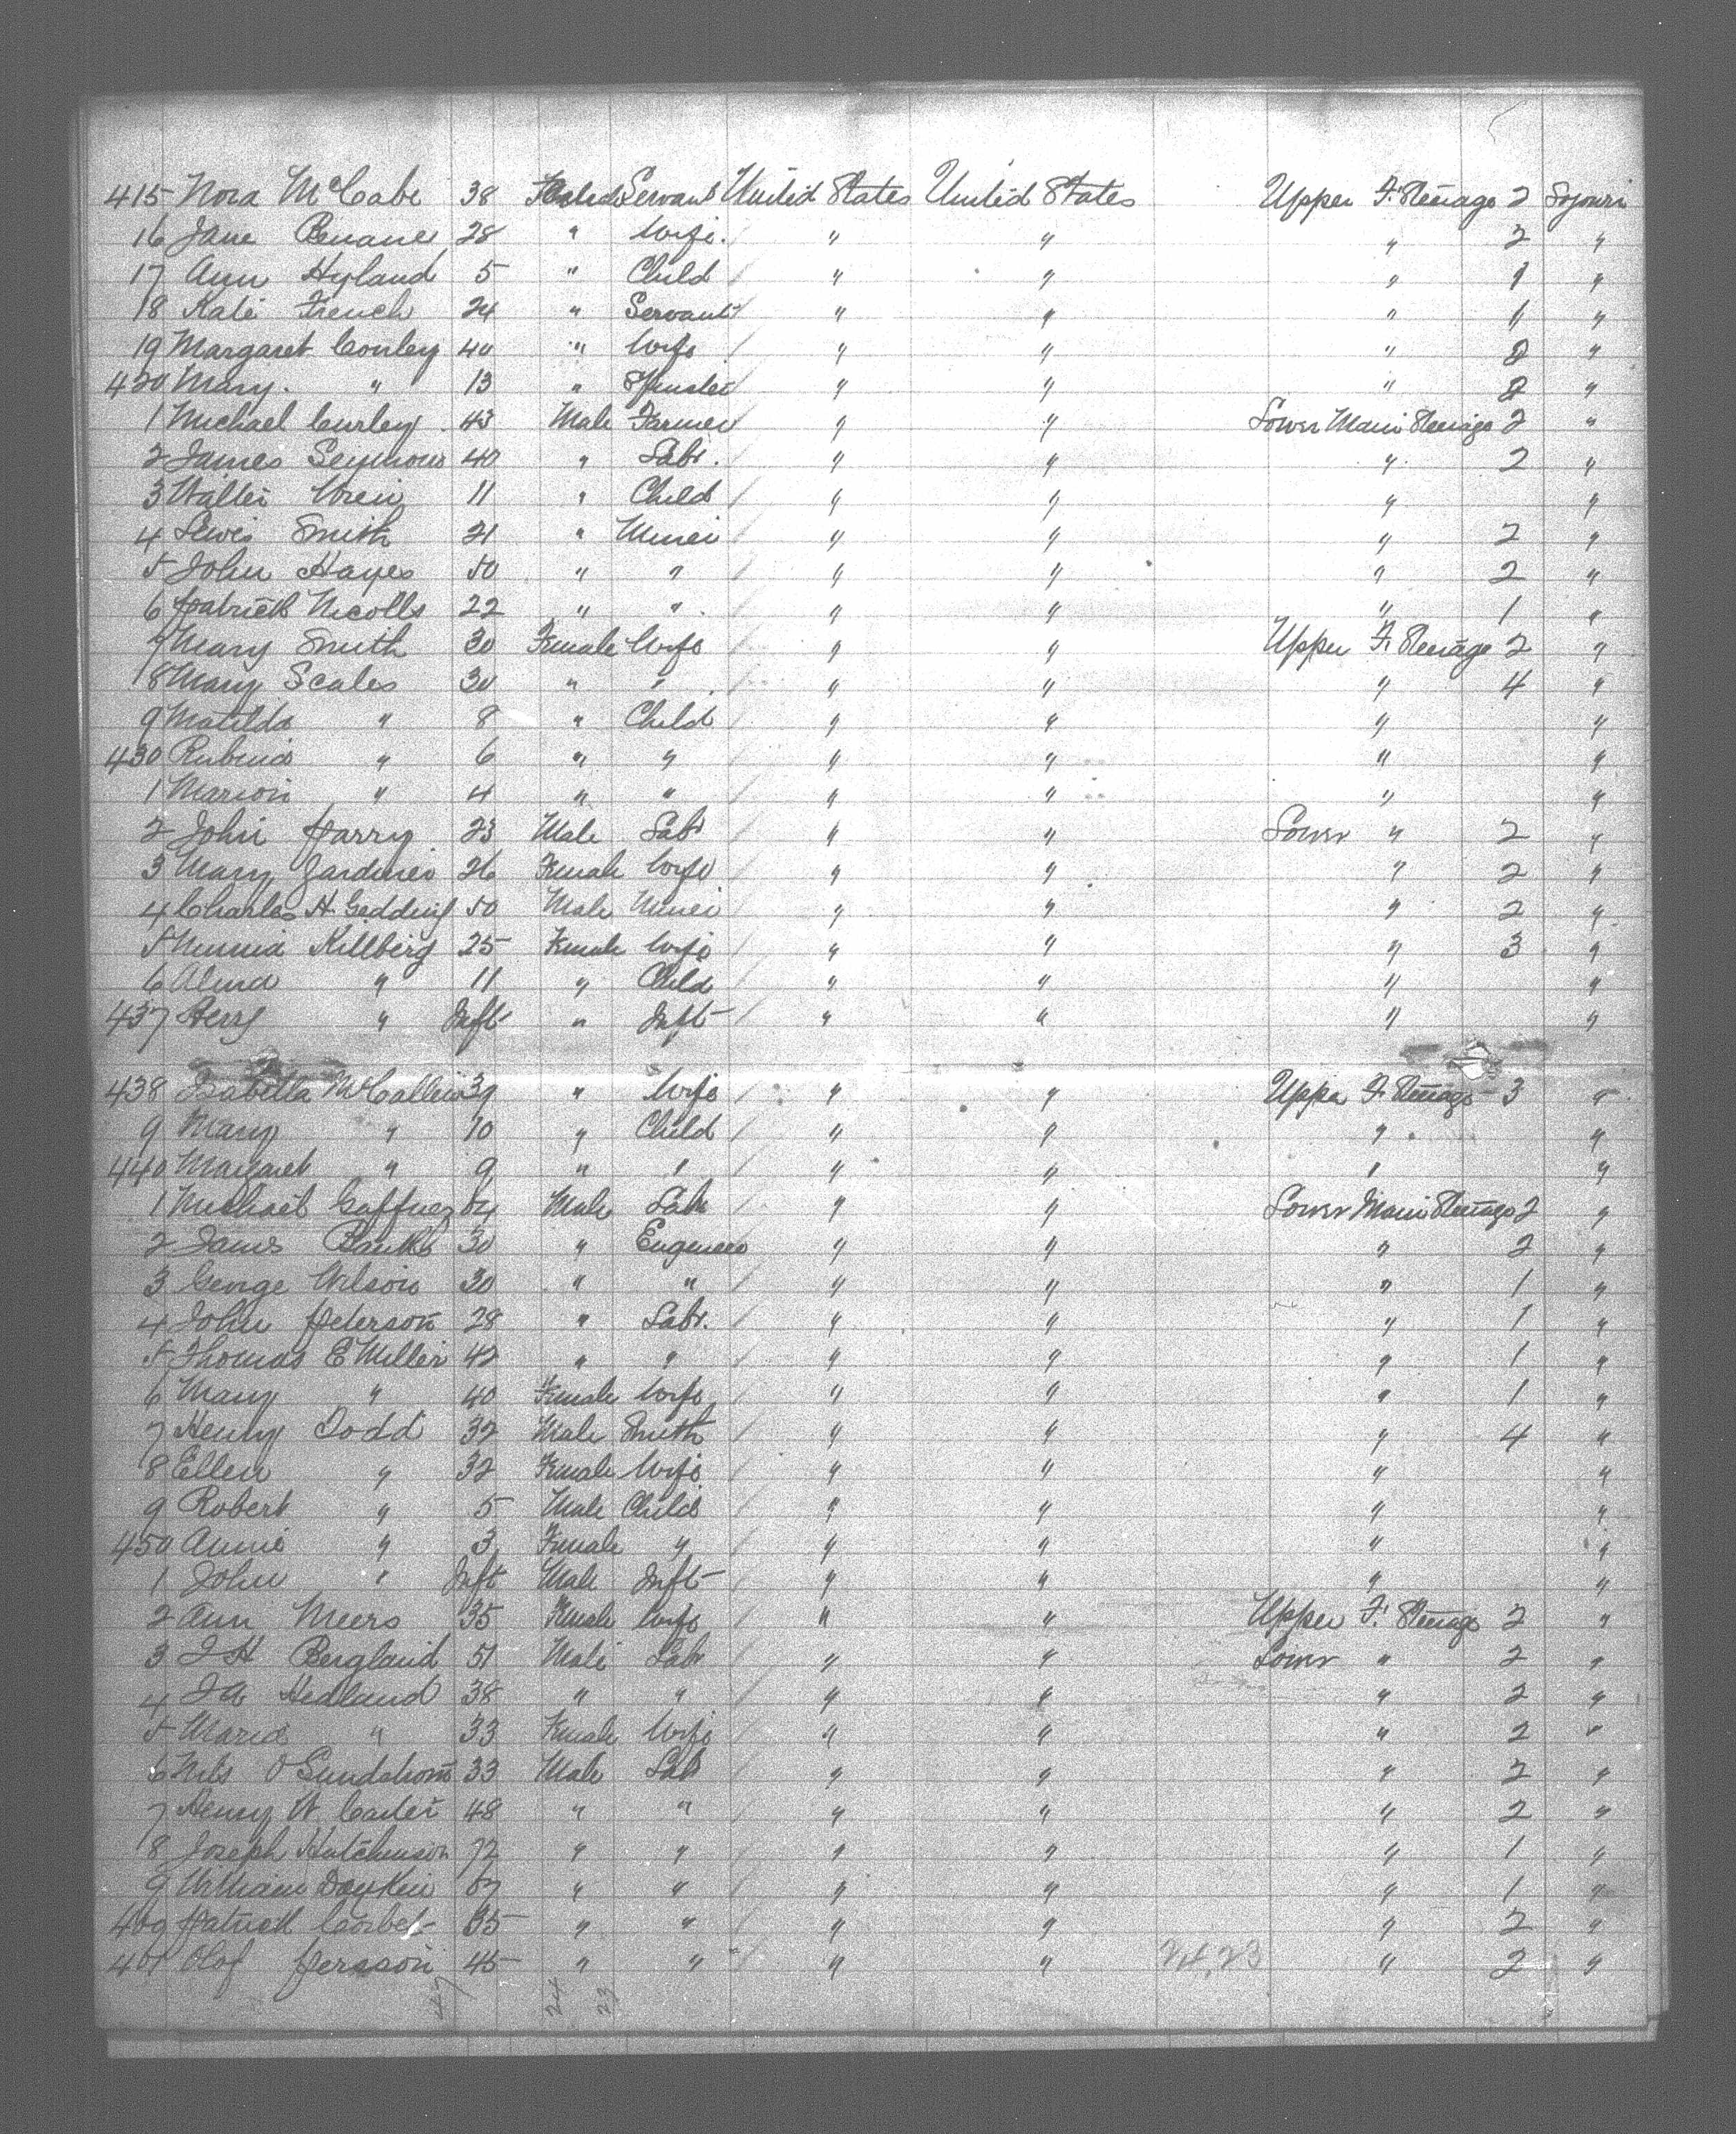 415 Nora McCabe 38 Female Servant United States United States Upper F. Steerage 2 Sojourn
16 Jane 28 " Wife. " " " 2 "
17 Ann Hyland 5 " Child " " " 1 "
18 Kate French 24 " Servant " " " 1 "
19 Margaret Conley 40 " Wife " " " 2 "
420 Mary. " 13 " Spinster " " " 2 "
1 Michael Curley 43 Male Farmer " " Lower Main Steerage 2 "
2 James Seymour 40 " Labr. " " " 2 "
3 Walter 11 " Child " " " "
4 Lewis Smith 21 " Miner " " " 2 "
5 John Hayes 50 " " " " " 2 "
6 Patrick Nicolls 22 " " " " " 1 "
7 Mary Smith 30 Female Wife " " Upper F. Steerage 2 "
8 Mary Scales 30 " " " " " 4 "
9 Matilda " 8 " Child " " " "
430 Rubina " 6 " " " " " "
1 Marion " 4 " " " " " "
2 John Parry 23 Male Labr " " Lower " 2 "
3 Mary Gardiner 26 Female Wife " " " 2 "
4 Charles H. Gedding 50 Male Miner " " " 2 "
5 Minnia Killberg 25 Female Wife " " " 3 "
6 Alma " 11 " Child " " " "
437 " Inft " Inft " " " "
438 Isabella McCallion 39 " Wife " " Upper F. Steerage 3 "
9 Mary " 10 " Child " " " "
440 Margaret " 9 " " " " " "
1 Michael Gaffney Male Labr " " Lower Main Steerage 2 "
2 James Banks 30 " Engineer " " " 2 "
3 George Wilson 30 " " " " " 1 "
4 John Peterson 28 " Labr. " " " 1 "
5 Thomas E Miller 42 " " " " " 1 "
6 Mary " 40 Female Wife " " " 1 "
7 Henry Dodd 32 Male Smith " " " 4 "
8 Ellen " 32 Female Wife " " " "
9 Robert " 5 Male Child " " " "
450 Annie " 3 Female " " " " "
1 John " Inft Male Inft " " " "
2 Ann Meers 35 Female Wife " " Upper F. Steerage 2 "
3 J H Bergland 51 Male Labr " " Lower " 2 "
4 J A Hedland 38 " " " " " 2 "
5 Maria " 33 Female Wife " " " 2 "
6 Nils O Sundstrom 33 Male Labr " " " 2 "
7 Henry W. Carter 48 " " " " " 2 "
8 Joseph Hutchinson 72 " " " " " 1 "
9 William Doykin 67 " " " " " 1 "
Patrick Corbet 35 " " " " " 2 "
Olof Persson 45 " " " " 24.23 " 2 "
47 24 23